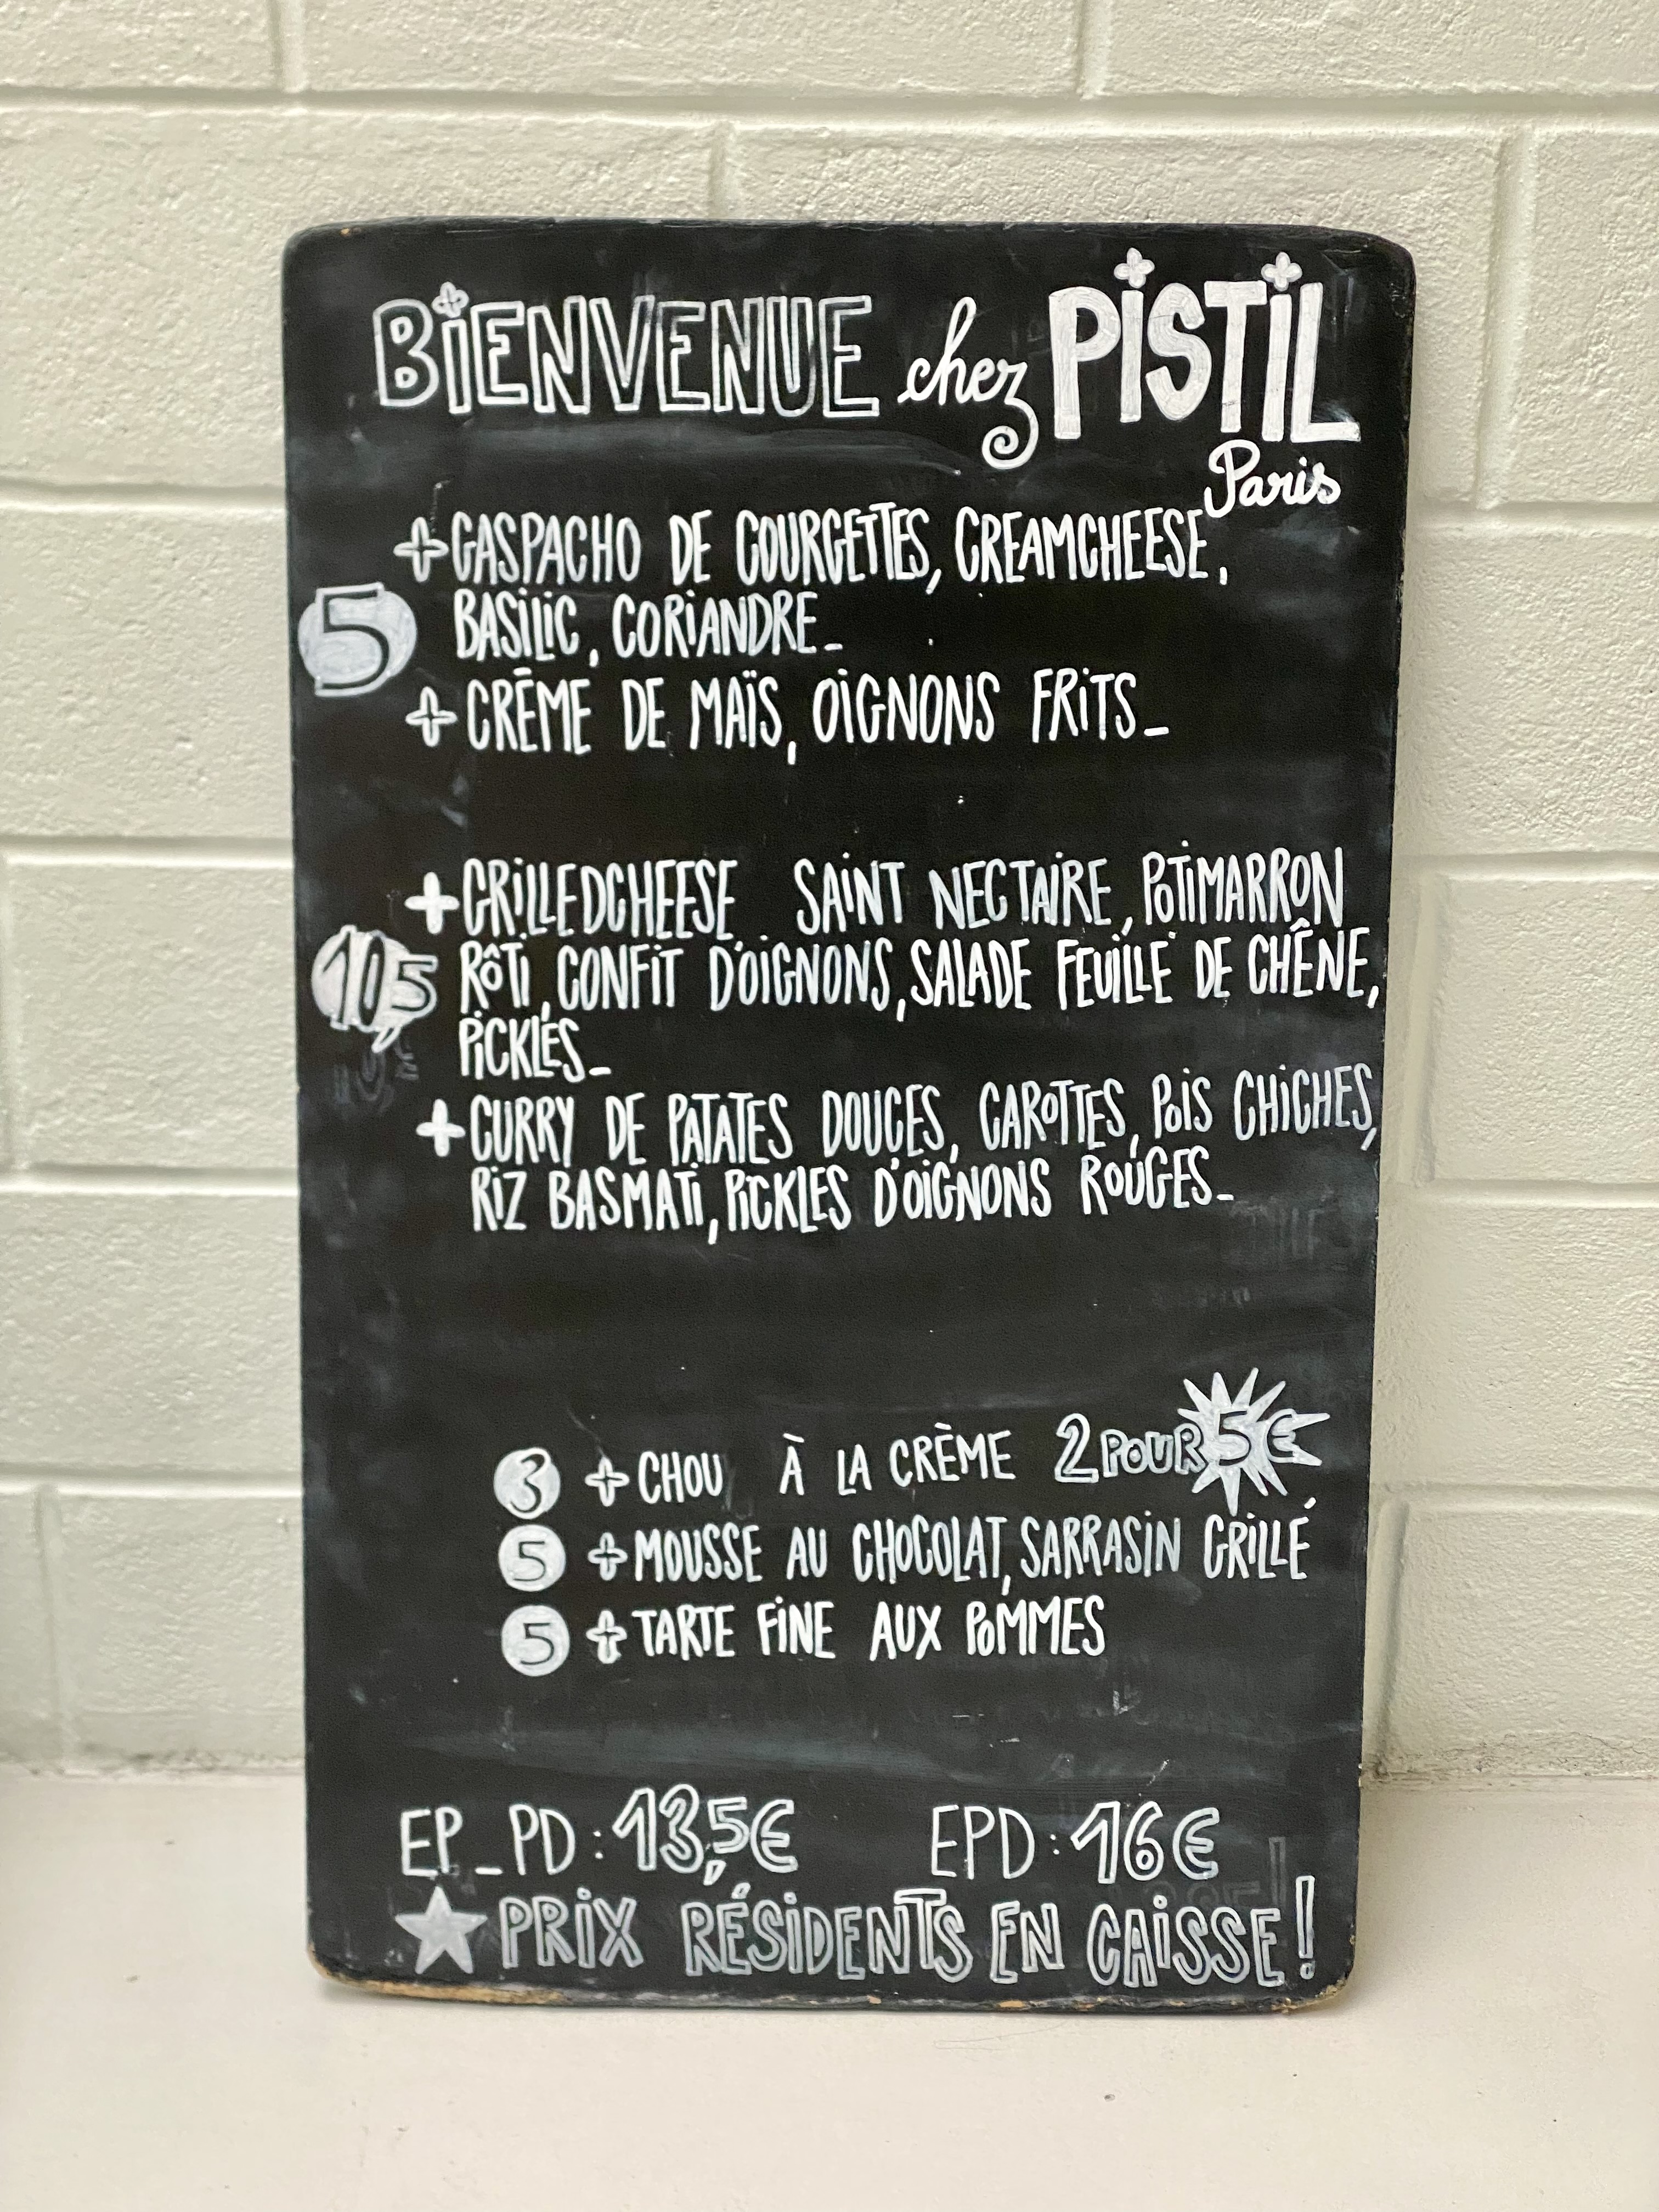 BIENVENUE chez PISTIL
Paris
+ GASPACHO DE COURGETTES, CREAMCHEESE,
5 BASILIC, CORIANDRE_
+ CRÈME DE MAÏS, OIGNONS FRITS_
+ GRILLEDCHEESE SAINT NECTAIRE, POTIMARRON
10,5 RÔTI, CONFIT D'OIGNONS, SALADE FEUILLE DE CHÊNE,
PICKLES_
+ CURRY DE PATATES DOUCES, CAROTTES, POIS CHICHES,
RIZ BASMATI, PICKLES D'OIGNONS ROUGES_
3 + CHOU À LA CRÈME 2 POUR 5€
5 + MOUSSE AU CHOCOLAT, SARRASIN GRILLÉ
5 + TARTE FINE AUX POMMES
EP_PD: 13,5€ EPD: 16€
★ PRIX RÉSIDENTS EN CAISSE!